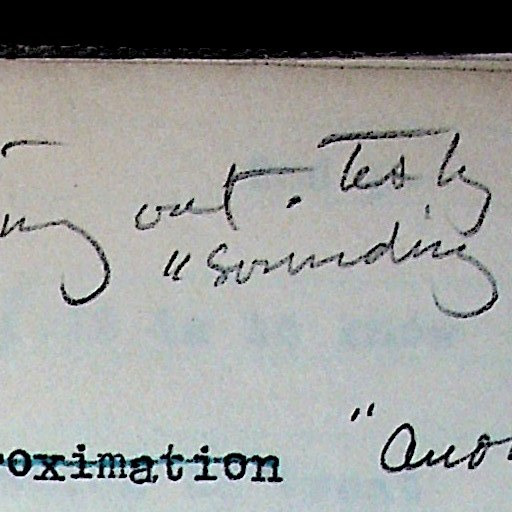 out. Test by
"sounding
oximation "ano